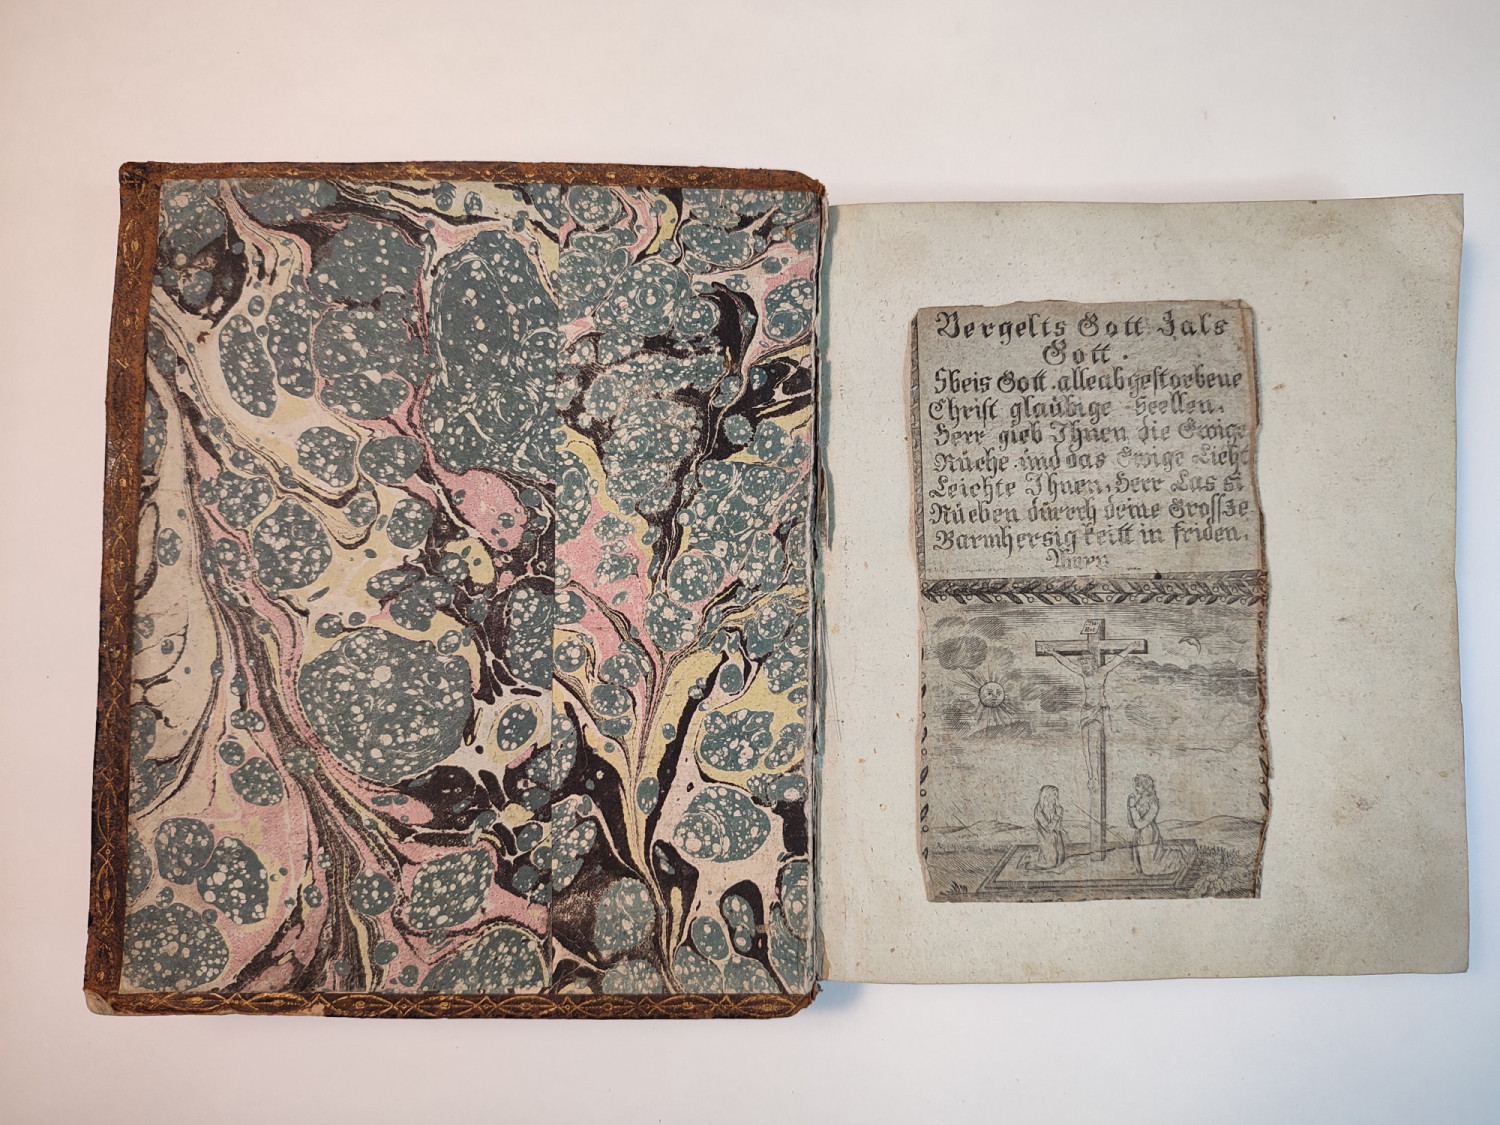 Vergelts Gott Jals
Gott.
Sbeis Gott. alle abgestorbene
Christ glaubige Seellen.
Herr gieb Ihnen die Ewige
Rüche und das Ewige Licht
Leichte Ihnen. Herr Las si
Rueben dürch deine Grosse
Barmhersig keitt in friden.
Amen